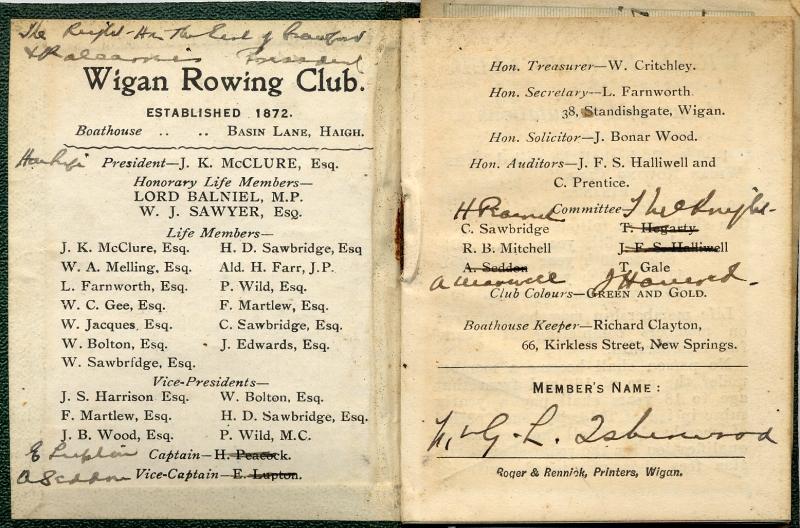 The Right Hon The Earl of Crawford
& Balcarres President
Wigan Rowing Club.
ESTABLISHED 1872.
Boathouse .. .. BASIN LANE, HAIGH.
President—J. K. McCLURE, Esq.
Honorary Life Members—
LORD BALNIEL, M.P.
W. J. SAWYER, Esq.
Life Members—
J. K. McClure, Esq. H. D. Sawbridge, Esq
W. A. Melling, Esq. Ald. H. Farr, J.P.
L. Farnworth, Esq. P. Wild, Esq.
W. C. Gee, Esq. F. Martlew, Esq.
W. Jacques, Esq. C. Sawbridge, Esq.
W. Bolton, Esq. J. Edwards, Esq.
W. Sawbridge, Esq.
Vice-Presidents—
J. S. Harrison Esq. W. Bolton, Esq.
F. Martlew, Esq. H. D. Sawbridge, Esq.
J. B. Wood, Esq. P. Wild, M.C.
E Lupton Captain—H. Peacock.
A Seddon Vice-Captain—E. Lupton.
Hon. Treasurer—W. Critchley.
Hon. Secretary—L. Farnworth
38, Standishgate, Wigan.
Hon. Solicitor—J. Bonar Wood.
Hon. Auditors—J. F. S. Halliwell and
C. Prentice.
H Peacock Committee—
C. Sawbridge T. Hegarty
R. B. Mitchell J. F. S. Halliwell
A. Seddon T. Gale
Club Colours—GREEN AND GOLD.
Boathouse Keeper—Richard Clayton,
66, Kirkless Street, New Springs.
MEMBER'S NAME:
G. L. Isherwood
Roger & Rennick, Printers, Wigan.